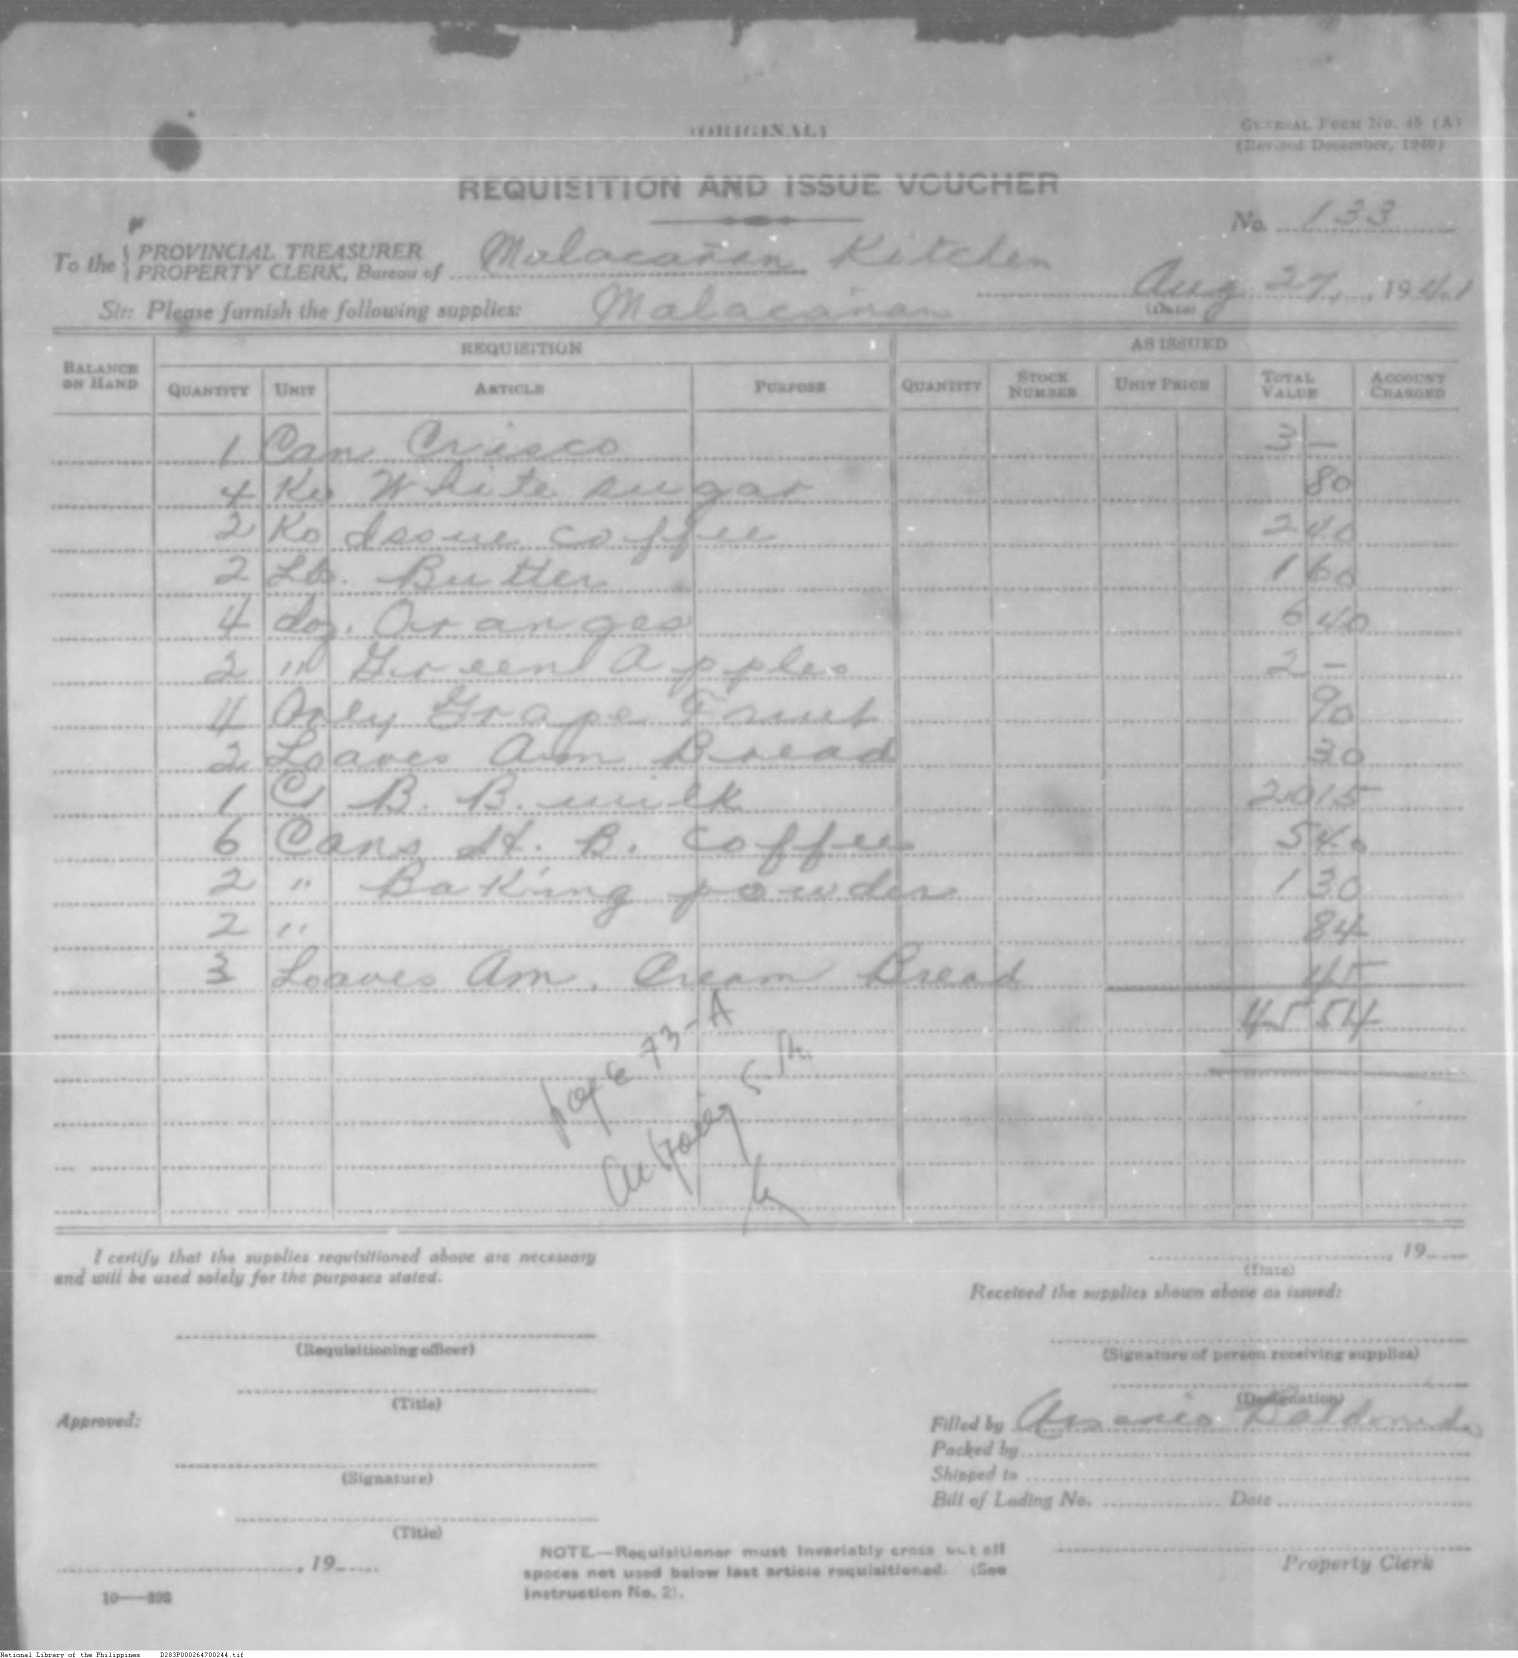 (ORIGINAL)
GENERAL FORM NO. 45 (A)
(Revised December, 1940)
REQUISITION AND ISSUE VOUCHER
No. 133
To the { PROVINCIAL TREASURER
PROPERTY CLERK, Bureau of Malacañan Kitchen
Aug 27, 1941
(Date)
Sir: Please furnish the following supplies: Malacañan
BALANCE ON HAND REQUISITION AS ISSUED
QUANTITY UNIT ARTICLE PURPOSE QUANTITY STOCK NUMBER UNIT PRICE TOTAL VALUE ACCOUNT CHARGED
1 Can Crisco 3 —
4 Ko White sugar 80
2 Ko Issue coffee 2 40
2 Lb. Butter 1 60
4 doz. Oranges 6 40
2 " Green Apples 2 —
4 Only Grape Fruit 90
2 Loaves Am Bread 30
1 C B. B. milk 20 15
6 Cans H. B. coffee 5 40
2 " Baking powder 1 30
2 " 84
3 Loaves Am. Cream Bread 45
45 54
page 73-A
I certify that the supplies requisitioned above are necessary
and will be used solely for the purposes stated.
(Requisitioning officer)
(Title)
Approved:
(Signature)
(Title)
, 19
10—898
, 19
(Date)
Received the supplies shown above as issued:
(Signature of person receiving supplies)
(Designation)
Filled by Arsenio
Packed by
Shipped to
Bill of Lading No. Date
Property Clerk
NOTE.—Requisitioner must invariably cross out all
spaces not used below last article requisitioned. (See
Instruction No. 2).
National Library of the Philippines D283P000264700244.tif